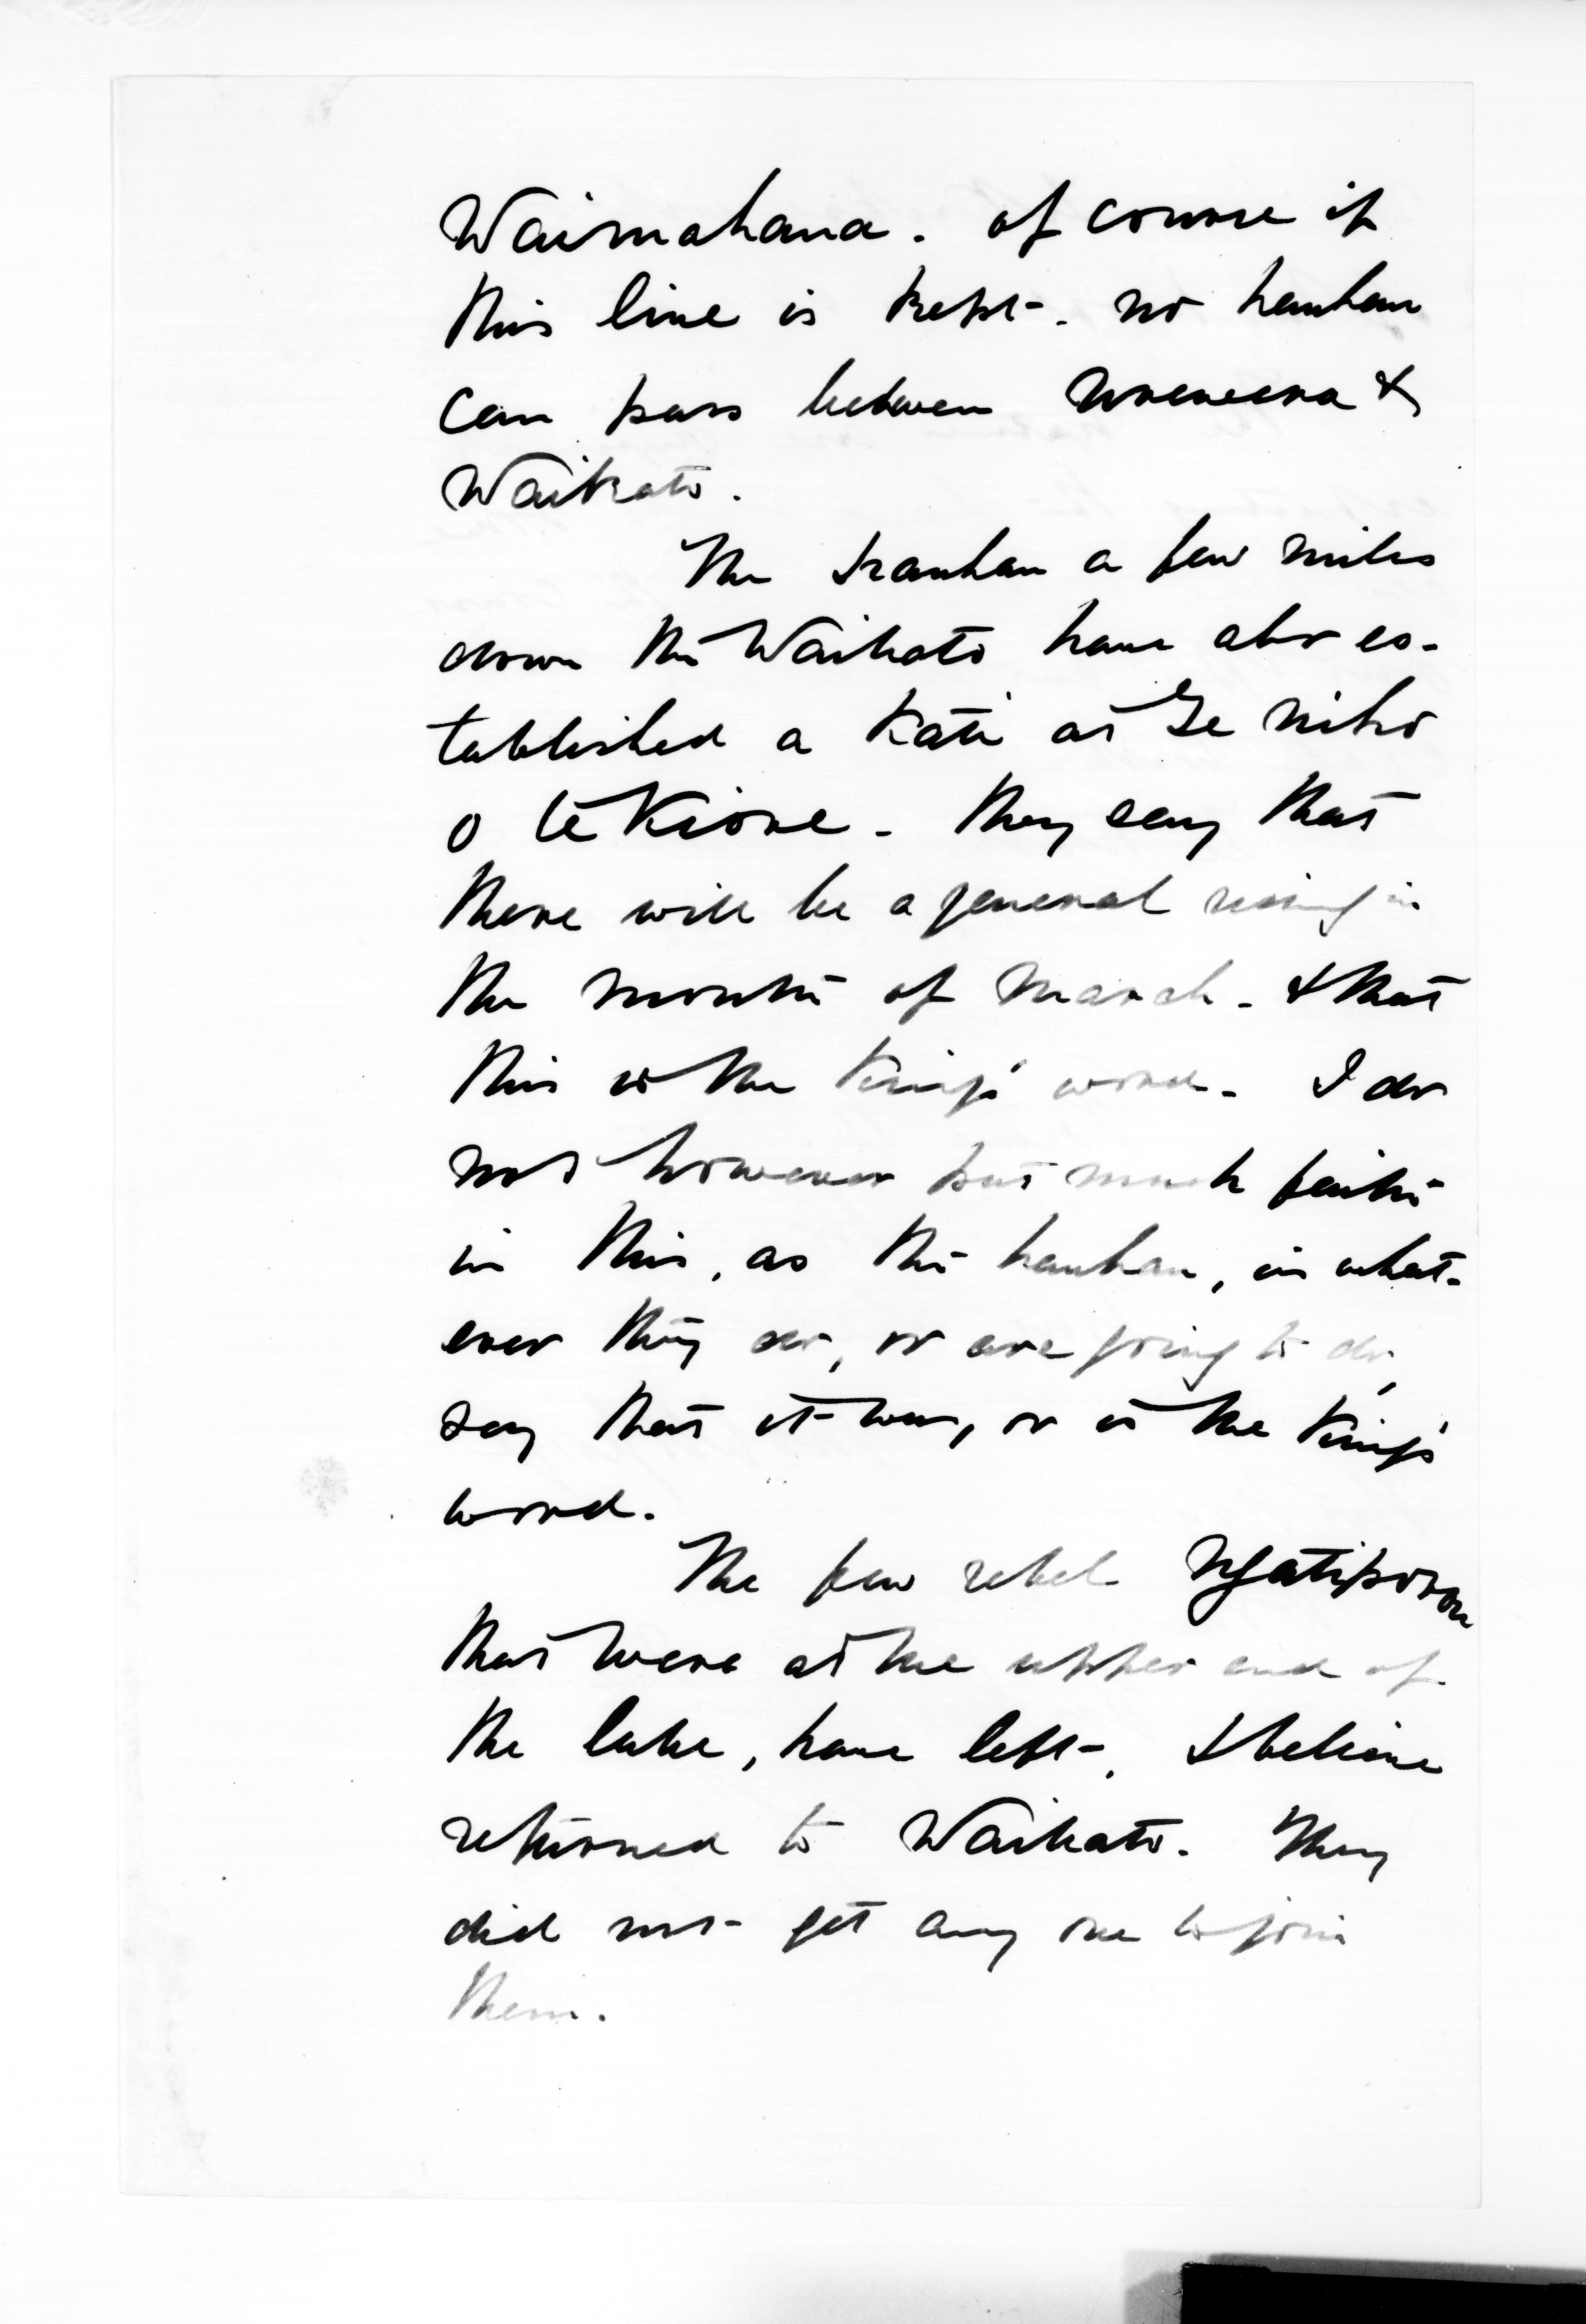 Waimahana. of course if
this line is kept. no hauhau
can pass between Urewera &
Waikato.
The Hauhau a few miles
down the Waikato have also es-
tablished a Kati at Te niho
o te Kiore. They say that
there will be a general rising in
the month of March. & that
this is the King's word. I do
not however put much faith
in this, as the hauhau, in what-
ever they do, or are going to do,
say that it was, or is the King's
word.
The few rebel Ngatiporou
that were at the upper end of
the lake, have left, & believe
returned to Waikato. They
did not get any one to join
them.